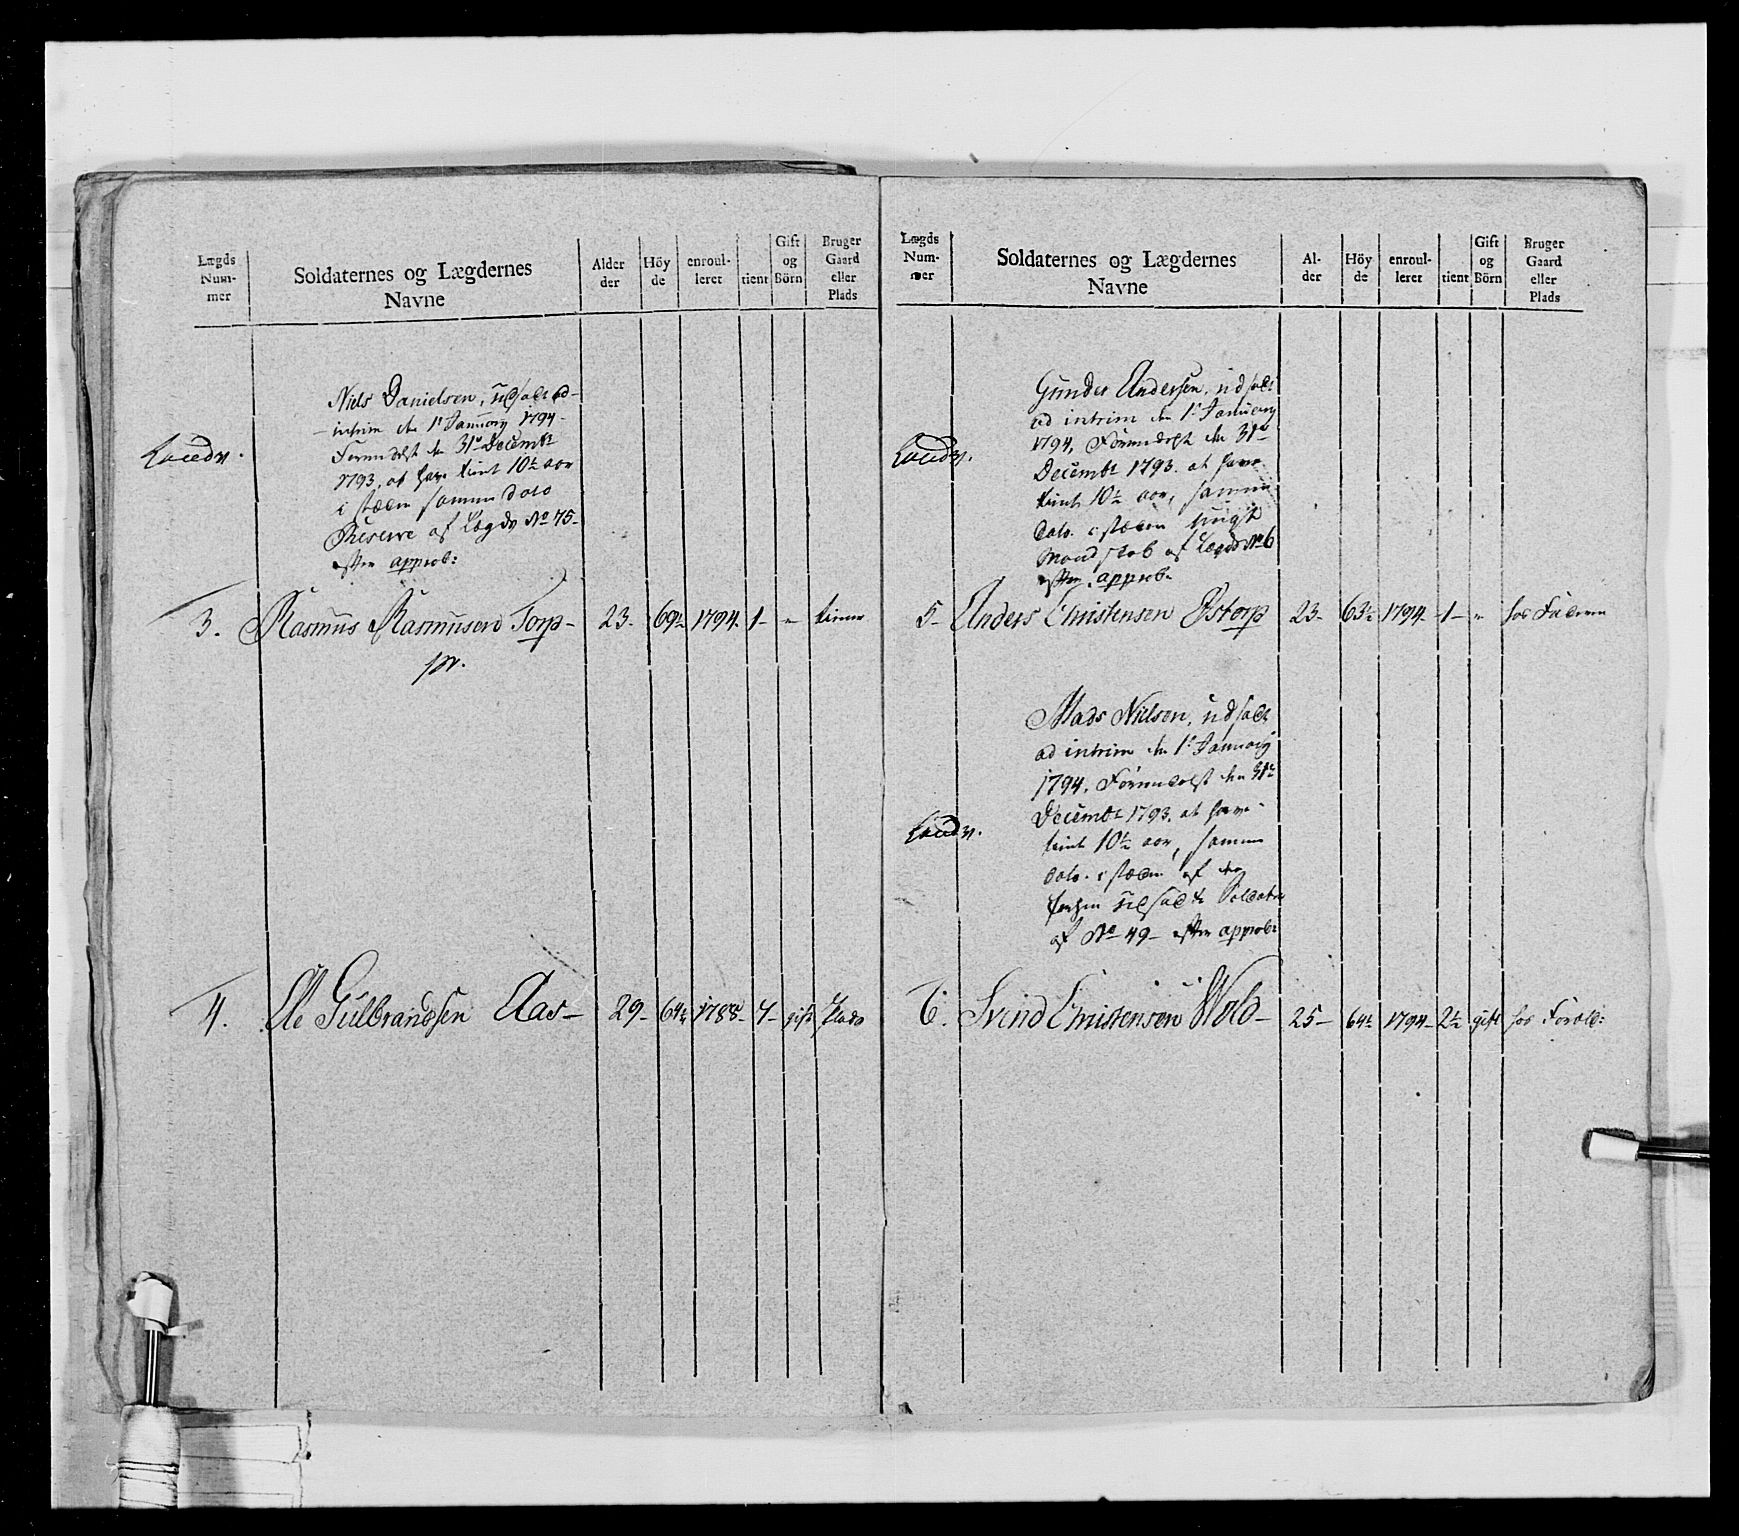 Lægds
Num-
mer
Soldaternes og Lægdernes
Navne
Alder
der
Höy
de
enroul-
leret
tient
Gift
og
Börn
Bruger
Gaard
eller
Plads
Niels Danielsen, udsadt ad-
intrim den 1te Januarij 1794-
Forundelst den 31te Decembr
1793, at have tient 10½ aar
i stæden samme dato
Reserve af Lægds No 75-
efter approb:
Landv.
3. Rasmus Rasmusen Torp- 23- 69½ 1794. 1- " tiener
pr.
4. Ole Gulbrandsen Aas- 29- 64½ 1788- 7- gift Plads
Lægds
Num-
mer
Soldaternes og Lægdernes
Navne
Al-
der
Höy
de
enroul-
leret
tient
Gift
og
Börn
Bruger
Gaard
eller
Plads
Gunder Andersen, udsadt
ad intrim den 1te Januarij
1794, Forundelst den 31te
Decembr 1793. at have
tient 10½ aar, samme
dato. i stæden ungt
Mandskab af Lægds No 6
efter approb.
Landv.
5- Anders Christensen Østorp 23- 63½ 1794- 1- " hos Faderen
Mads Nielsen, udsadt
ad intrim den 1te Januarij
1794. Forundelst den 31te
Decembr 1793. at have
tient 10½ aar, samme
dato. i stæden af den
forhen udsadte Soldater
af No 49- efter approb:
Landv.
6. Svend Christensen Wold- 25- 64½ 1794- 2½ gift hos Foræld: